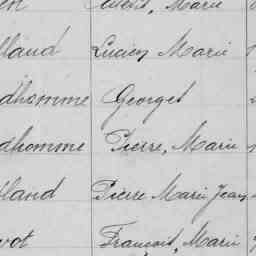 Marie
lland Lucien Marie
dhomme Georget
dhomme Pierre, Marie
lland Pierre Marie Jean
vot François, Marie